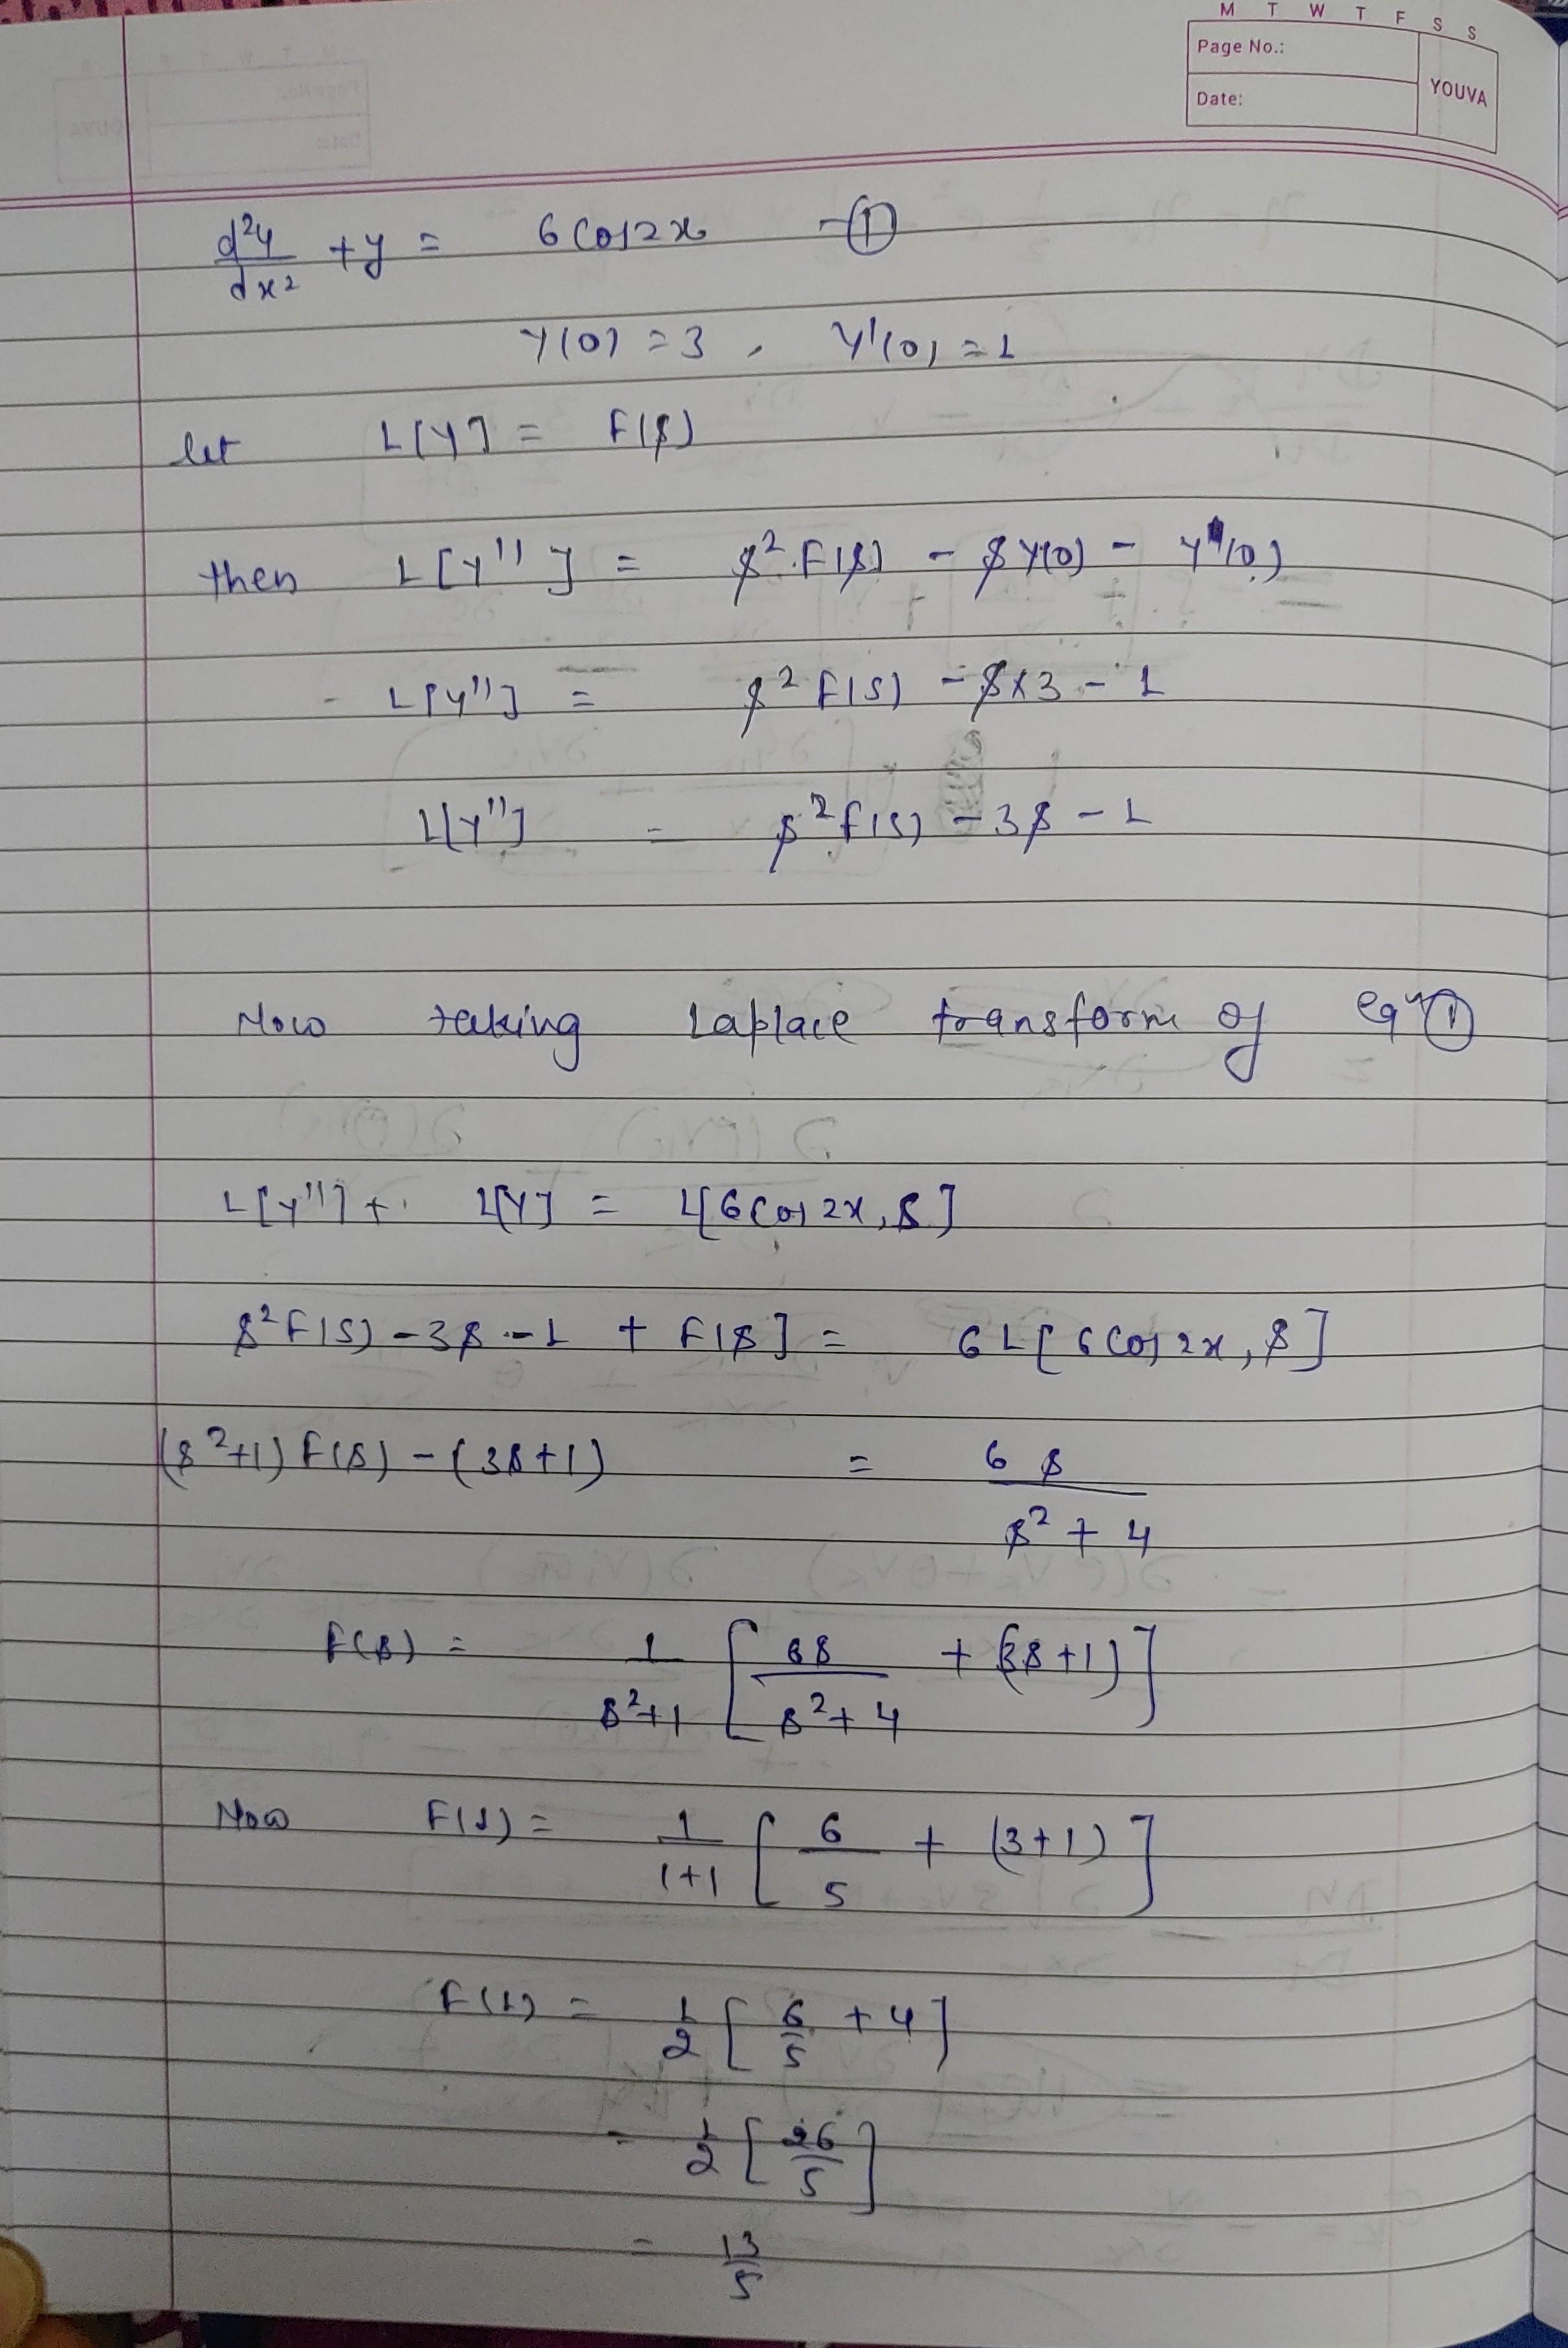 M T W T F S S
Page No.:
Date:
YOUVA
d²y/dx² + y = 6 Cos2x - ①
Y(0) = 3 , Y'(0) = 1
let L[Y] = F(s)
then L[Y''] = s² F(s) - s Y(0) - Y'(0)
L[Y''] = s² F(s) - s×3 - 1
L[Y''] = s² f(s) - 3s - 1
Now taking Laplace transform of eqn ①
L[Y''] + L[Y] = L[6Cos 2x, s]
s² F(s) - 3s - 1 + F(s] = 6 L[6Cos 2x, s]
(s²+1) F(s) - (3s+1) = 6s/s² + 4
F(s) = 1/s²+1 [6s/s²+4 + (3s+1)]
Now F(1) = 1/1+1 [6/5 + (3+1)]
F(1) = 1/2 [6/5 + 4]
= 1/2 [26/5]
= 13/5